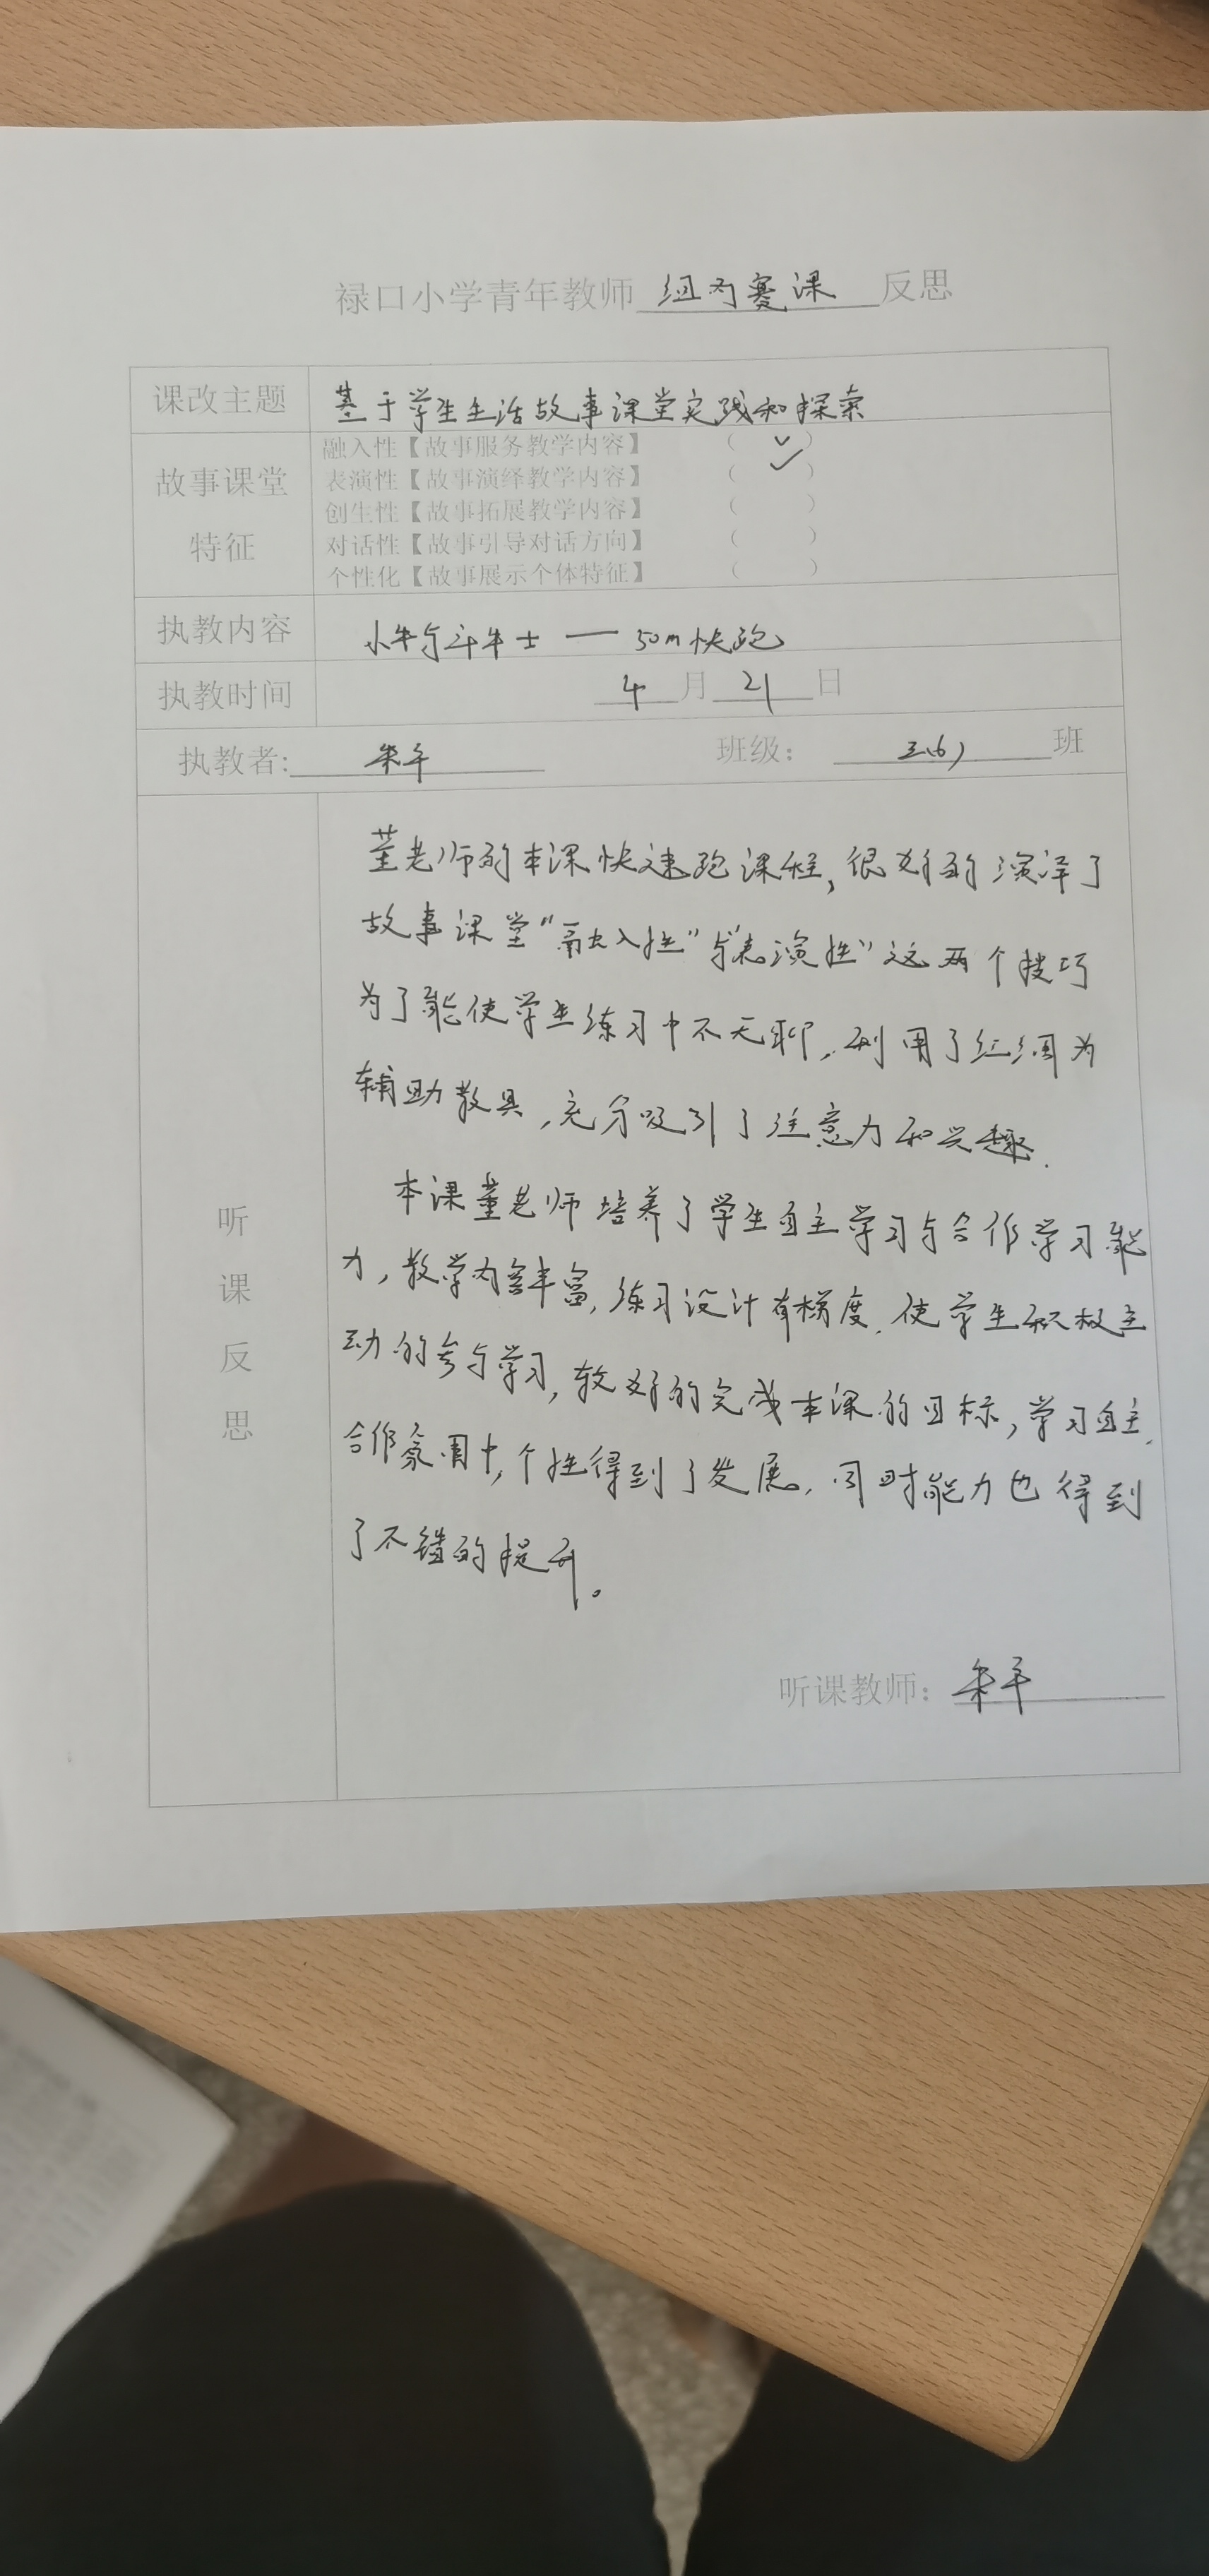 禄口小学青年教师 组内赛课 反思
课改主题 基于学生生活故事课堂实践和探索
故事课堂特征
融入性【故事服务教学内容】 （ ✓ ）
表演性【故事演绎教学内容】 （ ✓ ）
创生性【故事拓展教学内容】 （ ）
对话性【故事引导对话方向】 （ ）
个性化【故事展示个体特征】 （ ）
执教内容 小牛与斗牛士 — 50m快跑
执教时间 4 月 21 日
执教者: 朱平 班级： 三(6) 班
听课反思
董老师的本课快速跑课程，很好的演泽了
故事课堂“融入性”与“表演性”这两个技巧
为了能使学生练习中不无聊，利用了红绸为
辅助教具，充分吸引了注意力和兴趣.
本课董老师培养了学生自主学习与合作学习能
力，教学内容丰富，练习设计有梯度，使学生积极主
动的参与学习，较好的完成本课的目标，学习自主、
合作氛围中，个性得到了发展，同时能力也得到
了不错的提升。
听课教师： 朱平